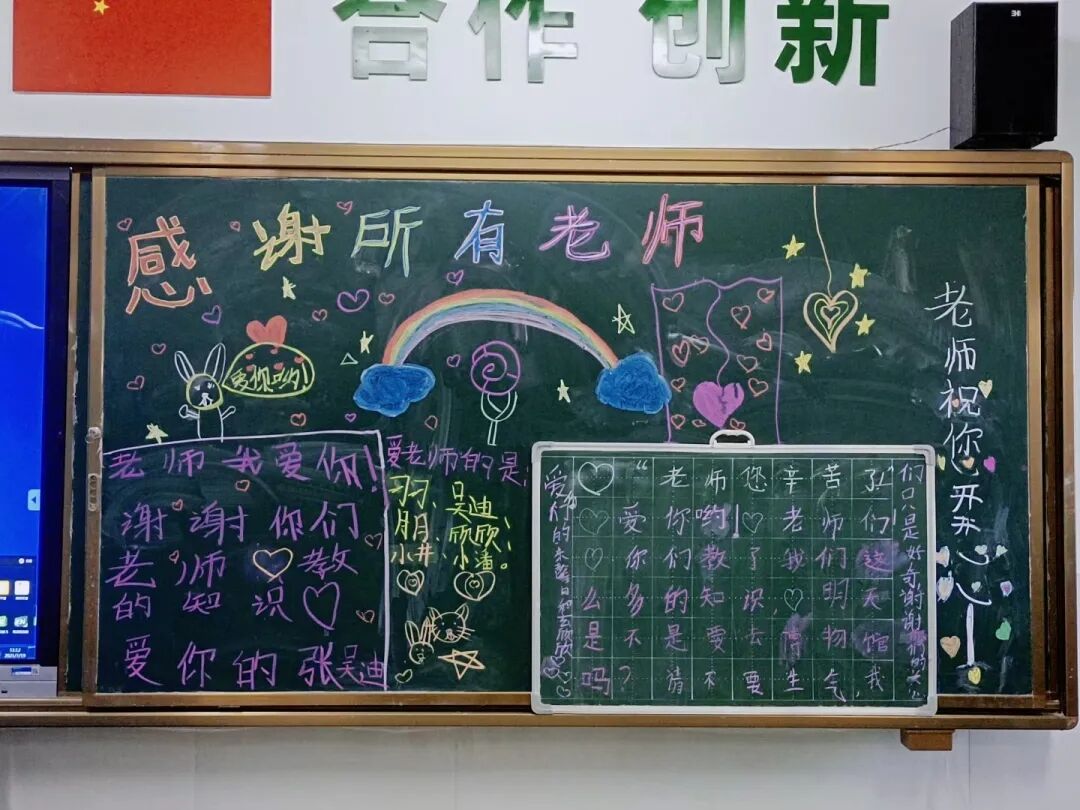 合作 创新
感谢所有老师
爱你哟!
老师祝你开开心心
老师我爱你!
谢谢你们
老师♡教
的知识♡
爱你的张吴迪
爱老师的是:
习习、吴迪、
朋月、欣欣、
小井、小潘。
♡“老师您辛苦了!”
♡爱你哟!♡老师们!
♡你们教了我们这
么多的知识,♡明天
是不是要去博物馆
吗?请不要生气,我
们只是好奇谢谢
爱你的